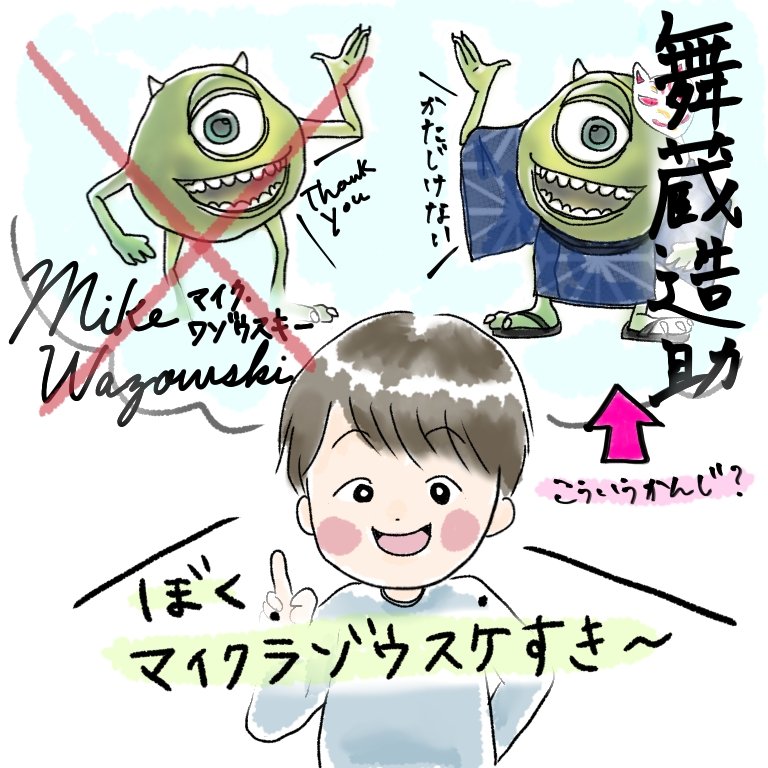 Thank
You
Mike
Wazowski
マイク・
ワゾウスキー
かたじけない
舞蔵造助
こういうかんじ?
ぼく
マイクラゾウスケすき〜